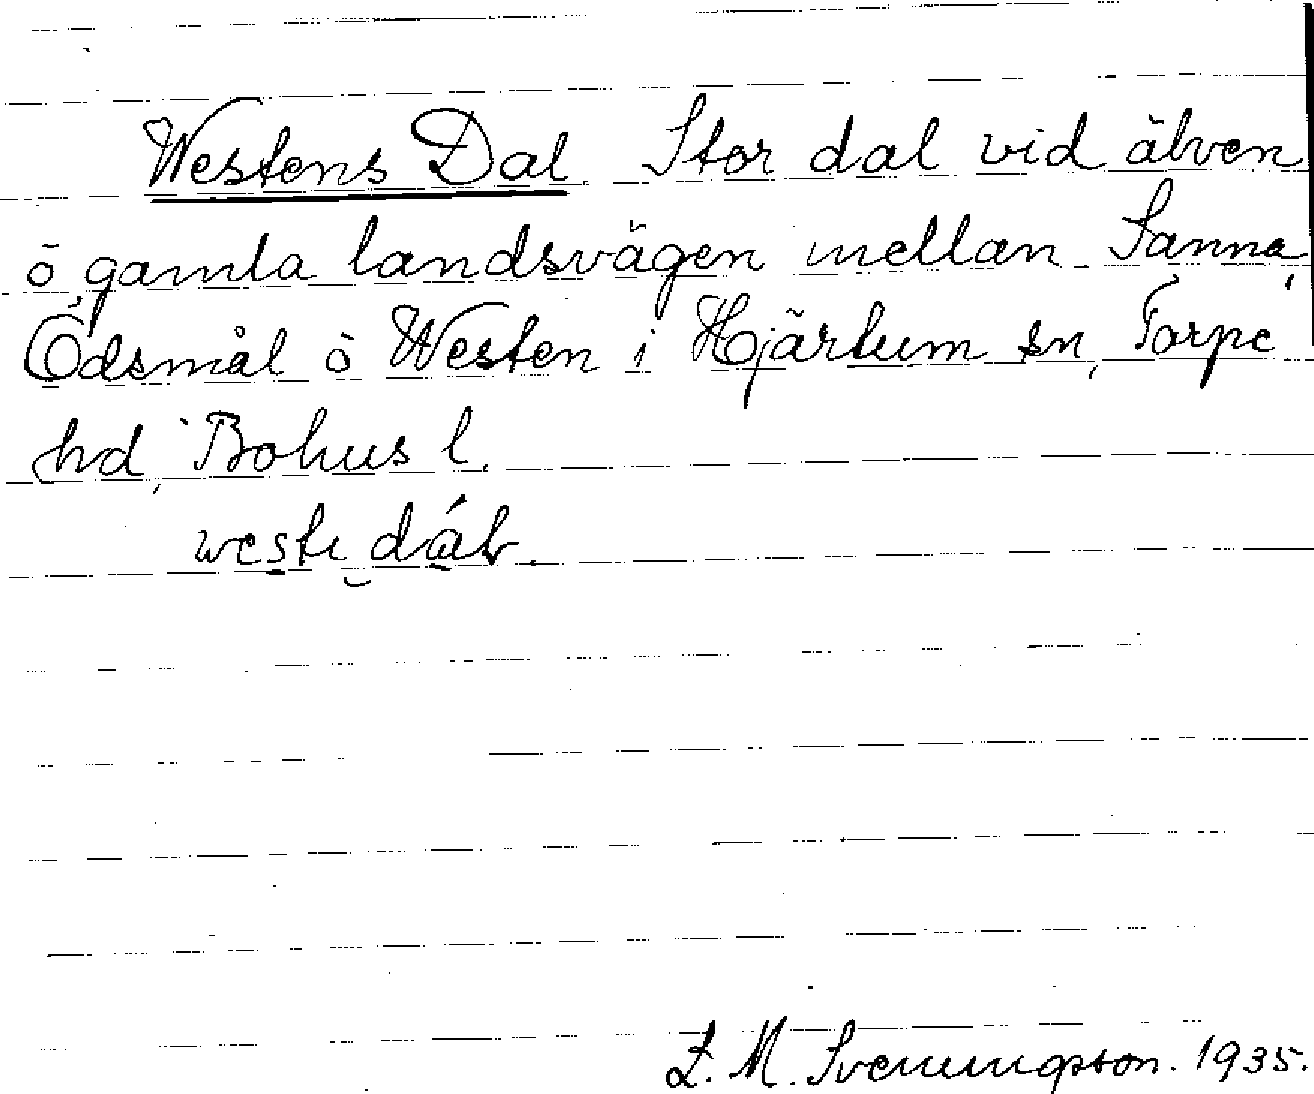 Westens Dal. Stor dal vid älven
ö gamla landsvägen mellan Sanna,
Ödsmål ö Westen i Hjärtum sn, Torpe
hd, Bohus l.
L. M. Svenungsson. 1935.